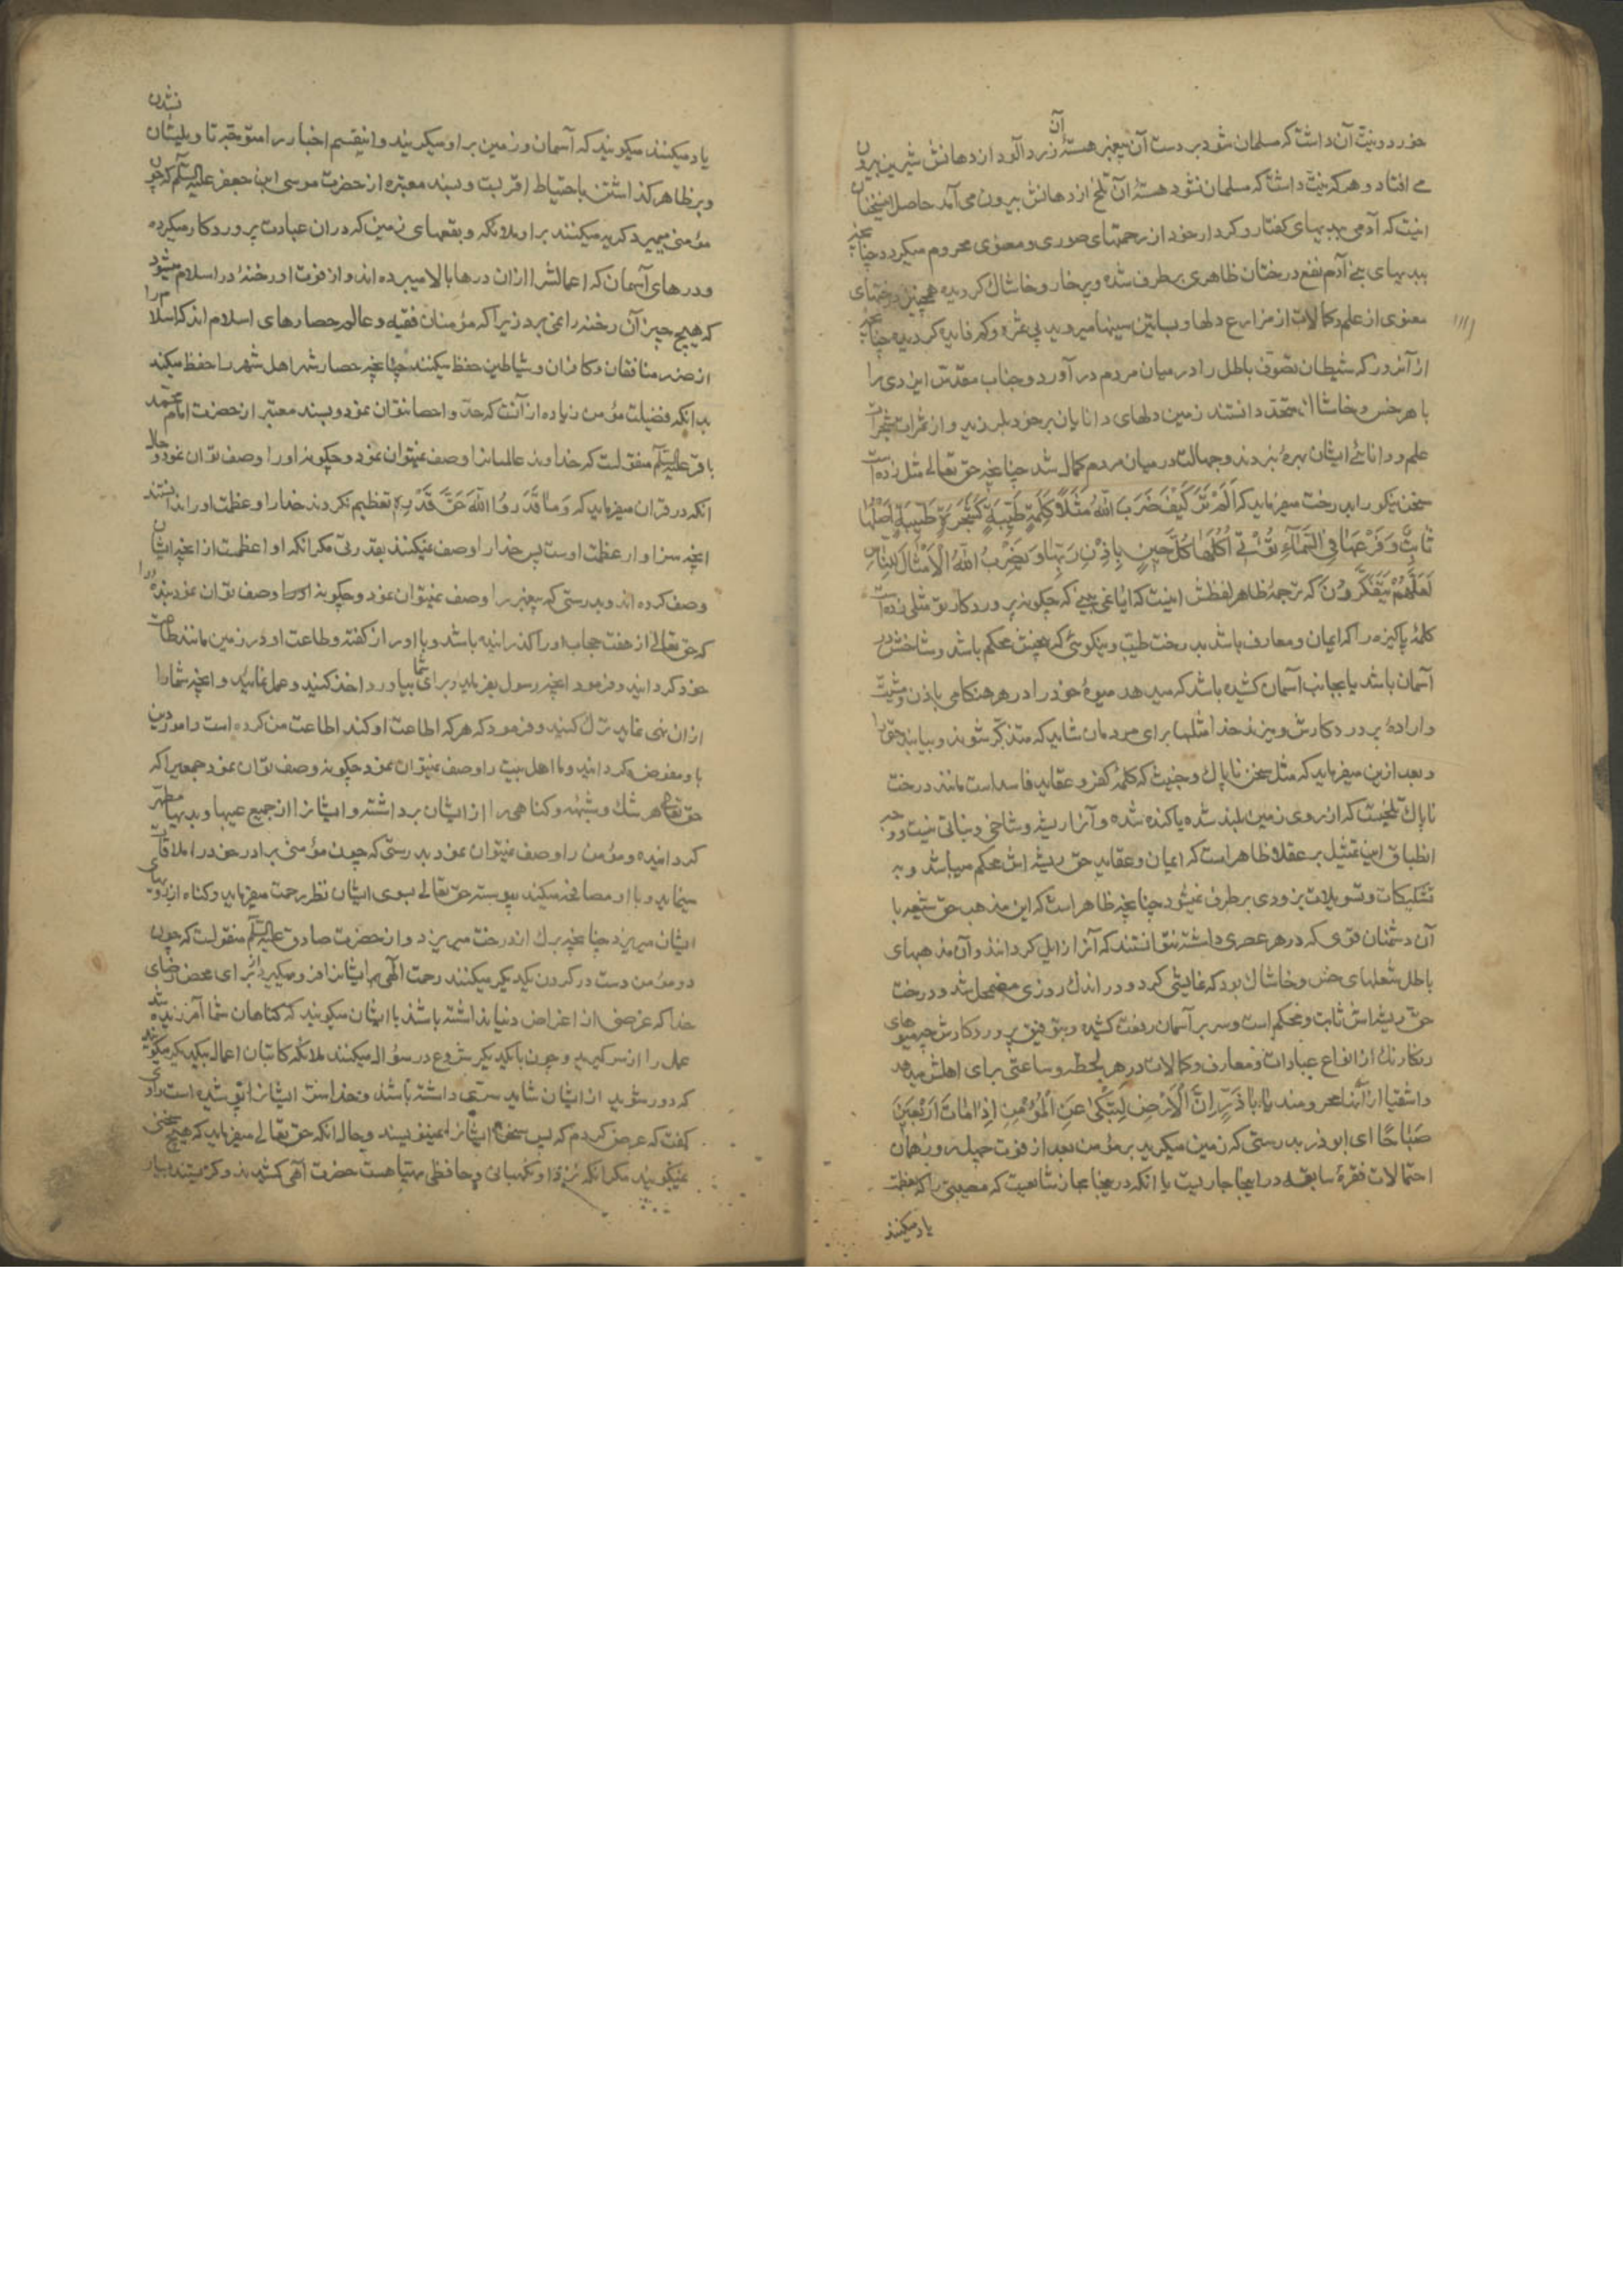 خورد و نیت آن داشت که مسلمان شود بر دست آن پیغمبر هستهٔ آن زرد آلود از دهانش شیرین بیرون
می افتاد و هر که نیت داشت که مسلمان نشود هستهٔ آن تلخ از دهانش بیرون می آمد حاصل این سخنان
اینست که آدمی ببدیهای گفتار و کردار خود از رحمتهای صوری و معنوی محروم میگردد چنانچه
ببدیهای بنی آدم نفع درختان ظاهری برطرف شده و پرخار و خاشاک گردیده همچنین درختهای
معنوی از علم و کمالات از مزارع دلها و بساتین سینها میروید بی ثمره و کم فایده گردیده چنانچه
از آنروز که شیطان تصوف باطل را در میان مردم در آورد و جناب مقدس ایزدی را
با هر خس و خاشاک متحد دانستند زمین دلهای دانایان بر خود بلرزید و از ثمرات شجرات
علم و دانائی ایشان بهره نبردند و جهالت در میان مردم کمال شد چنانچه حق تعالی مثل زده است
سخن نیکو را بدرخت میفرماید که أَلَمْ تَرَ كَيْفَ ضَرَبَ اللهُ مَثَلًا كَلِمَةً طَيِّبَةً كَشَجَرَةٍ طَيِّبَةٍ أَصْلُهَا
ثَابِتٌ وَفَرْعُهَا فِي السَّمَاءِ تُؤْتِي أُكُلَهَا كُلَّ حِينٍ بِإِذْنِ رَبِّهَا وَيَضْرِبُ اللهُ الْأَمْثَالَ لِلنَّاسِ
لَعَلَّهُمْ يَتَفَكَّرُونَ که ترجمهٔ ظاهر لفظش اینست که آیا نمی بینی که چگونه پروردگار تو مثلی زده است
کلمهٔ پاکیزه را که ایمان و معارف باشد بدرخت طیب و نیکوئی که بیخش محکم باشد و شاخش در
آسمان باشد یا بجانب آسمان کشیده باشد که میدهد میوهٔ خود را در هر هنگامی باذن و مشیت
و ارادهٔ پروردگارش و میزند خدا مثلها برای مردمان شاید که متذکر شوند و بیابند حق را
و بعد ازین میفرماید که مثل سخن ناپاک و خبیث که کلمهٔ کفر و عقاید فاسد است مانند درخت
ناپاک تلخیست که از روی زمین بلند شده یا کنده شده و آنرا ریشه و شاخی و ثباتی نیست و وجه
انطباق این تمثیل بر عقلا ظاهر است که ایمان و عقاید حق ریشه اش محکم میباشد و به
تشکیکات و تسویلات بزودی برطرف نمیشود چنانچه ظاهر است که این مذهب حق شیعه با
آن دشمنان قوی که در هر عصری داشته نتوانستند که آنرا زایل گردانند و آن مذهبهای
باطل شعلهای خس و خاشاک بود که نمایشی کرد و در اندک روزی مضمحل شد و درخت
حق ریشه اش ثابت و محکم است و سر بر آسمان رفعت کشیده و بتوفیق پروردگارش چه میوهای
رنگارنگ از انواع عبادات و معارف و کمالات در هر لحظه و ساعتی برای اهلش میدهد
و اشقیا از آنها محرومند یَا أَبَا ذَرٍّ إِنَّ الْأَرْضَ لَتَبْكِي عَنِ الْمُؤْمِنِ إِذَا مَاتَ أَرْبَعِينَ
صَبَاحًا ای ابوذر بدرستی که زمین میگرید بر مؤمن بعد از فوت چهل روز همان
احتمالات فقرهٔ سابقه در اینجا جاریست یا آنکه در اینجا مجاز شایعیست که مصیبتی را که بعظمت
یاد میکنند
یاد میکنند میگویند که آسمان و زمین بر او میگریند و اینقسم اخبار را متوجه تاویلشان نشدن
و بر ظاهر گذاشتن باحتیاط اقربست و بسند معتبره از حضرت موسی ابن جعفر علیه السلم که چون
مؤمنی میمیرد گریه میکنند بر او ملائکه و بقعهای زمین که در آن عبادت پروردگار میکرده
و درهای آسمان که اعمالش را از آن درها بالا میبرده اند و از فوت او رخنهٔ در اسلام میشود
که هیچ چیز آن رخنه را نمی برد زیرا که مؤمنان فقیه و عالم حصارهای اسلام اند که اسلام را
از ضرر منافقان و کافران و شیاطین حفظ میکنند چنانچه حصار شهر اهل شهر را حفظ میکند
بدانکه فضیلت مؤمن زیاده از آنست که حد و احصا توان نمود و بسند معتبر از حضرت امام محمد
باقر علیه السلم منقولست که خداوند عالمیانرا وصف نمیتوان نمود و چگونه او را وصف توان نمود و حال
آنکه در قرآن میفرماید که وَمَا قَدَرُوا اللهَ حَقَّ قَدْرِهِ تعظیم نکردند خدا را و عظمت او را ندانستند
آنچه سزاوار عظمت اوست پس خدا را وصف نمیکنند بقدرتی مگر آنکه او اعظمست از آنچه ایشان
وصف کرده اند و بدرستی که پیغمبر را وصف نمیتوان نمود و چگونه وصف توان نمود بندهٔ را
که حق تعالی از هفت حجاب او را گذرانیده باشد و با او راز گفته و طاعت او در زمین مانند طاعت
خود گردانید و فرمود آنچه رسول بفرماید و برای شما بیاورد اخذ کنید و عمل نمائید و آنچه شما را
از آن نهی نماید ترک کنید و فرمود که هر که اطاعت او کند اطاعت من کرده است و امور دین
باو مفوض گردانید و ما اهل بیت را وصف نمیتوان نمود چگونه وصف توان نمود جمعیرا که
حق تعالی هر شک و شبهه و گناهی را از ایشان برداشته و ایشانرا از جمیع عیبها و بدیها مطهر
گردانیده و مؤمن را وصف نمیتوان نمود بدرستی که چون مؤمنی برادر خود را ملاقات
مینماید و با او مصافحه میکند پیوسته حق تعالی بسوی ایشان نظر رحمت میفرماید و گناه از روی
ایشان میریزد چنانچه برگ از درخت میریزد و از حضرت صادق علیه السلم منقولست که چون
دو مؤمن دست در گردن یکدیگر میکنند رحمت الهی ایشانرا فرو میگیرد و اگر برای محض رضای
خدا که غرضی از اغراض دنیا نداشته باشند با ایشان میگویند که گناهان شما آمرزیده شد
عمل را از سر گیرید و چون با یکدیگر شروع در سؤال میکنند ملائکه کاتبان اعمال بیکدیگر میگویند
که دور شوید از ایشان شاید سرّی داشته باشند و خدا ستر ایشانرا پوشیده است راوی
گفت که عرض کردم که پس سخن ایشانرا نمینویسند و حال آنکه حق تعالی میفرماید که هیچ سخنی
نمیگویند مگر آنکه نزد او نگهبانی و حافظی مهیا هست حضرت آهی کشیدند و گریستند بسیار